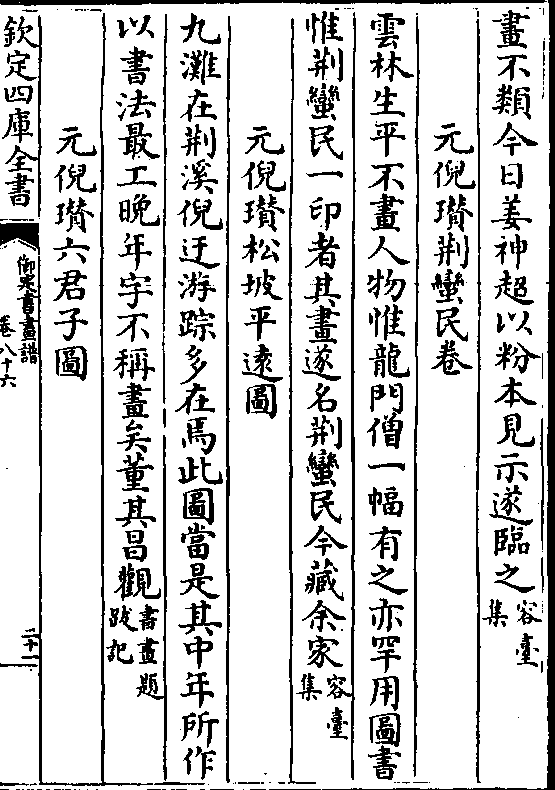 畫不類今日姜神超以粉本見示遂臨之容臺集
元倪瓚荆蠻民卷
雲林生平不畫人物惟龍門僧一幅有之亦罕用圖書
惟荆蠻民一印者其畫遂名荆蠻民今藏余家容臺集
元倪瓚松坡平逺圖
九灘在荆溪倪迂游踪多在焉此圖當是其中年所作
以書法最工晚年字不稱畫矣董其昌觀書畫題跋記
元倪瓚六君子圖
欽定四庫全書
御定書畫譜
卷八十六
二十一